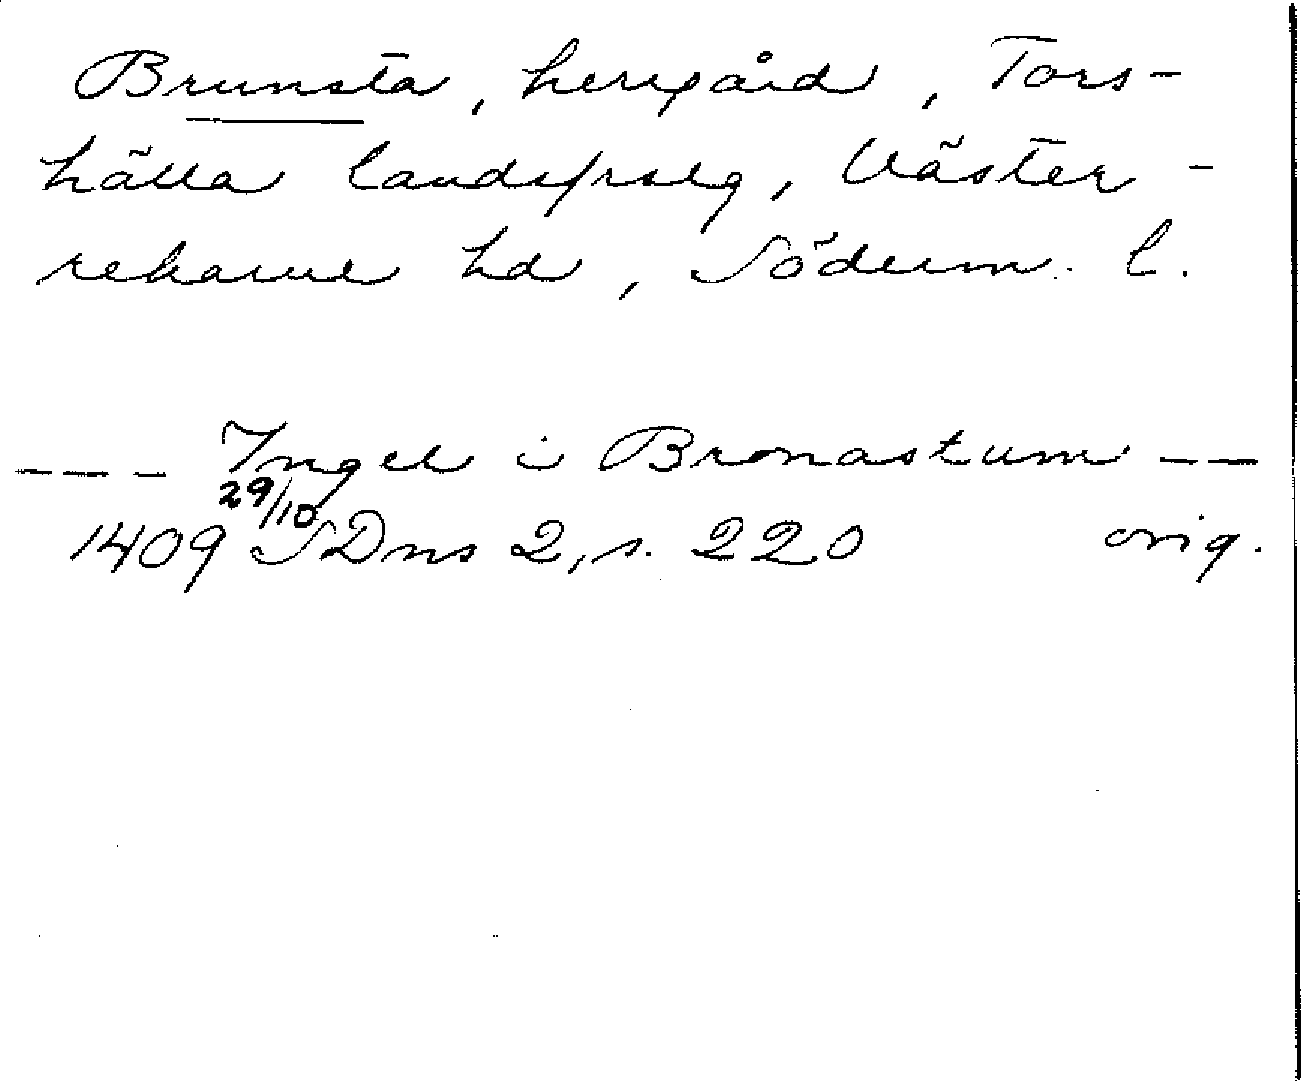 Brunsta, herrgård, Tors-
hälla landsförslg, Väster-
rekarne hd, Söderm. l.
--- Ingel i Bronastum --
29/10
1409 SDns 2, s. 220 orig.